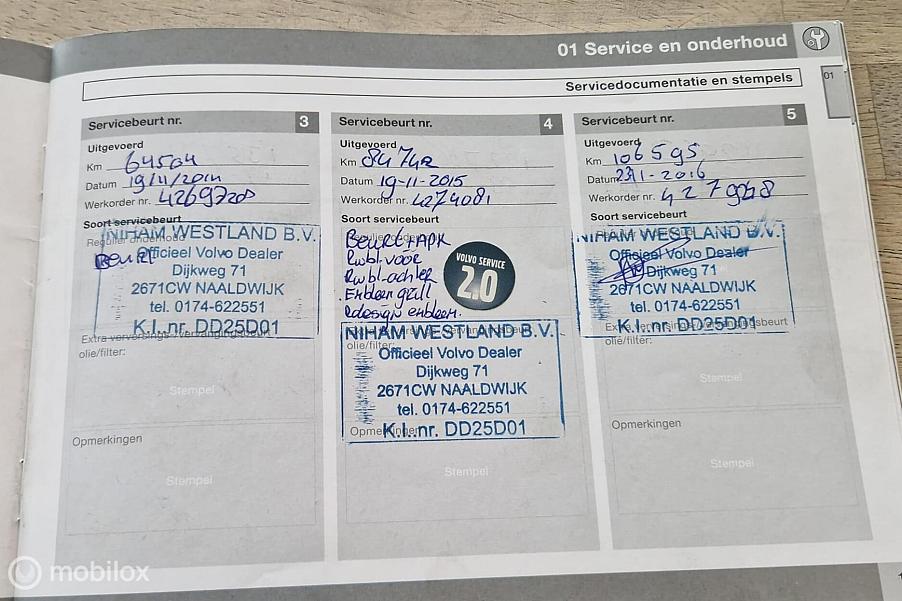 01 Service en onderhoud
01
Servicedocumentatie en stempels
Servicebeurt nr. 3
Uitgevoerd
Km 64504
Datum 19/11/2014
Werkorder nr. 4269720
Soort servicebeurt
Regulier onderhoud
Beurt
NIHAM WESTLAND B.V.
Officieel Volvo Dealer
Dijkweg 71
2671CW NAALDWIJK
tel. 0174-622551
K.I..nr. DD25D01
Extra verversings-/vervangingsbeurt
olie/filter:
Stempel
Opmerkingen
Stempel
Servicebeurt nr. 4
Uitgevoerd
Km 84742
Datum 19-11-2015
Werkorder nr. 4274081
Soort servicebeurt
Beurt + APK
Rwbl. voor
Rwbl. achter
Embleem grill
Rdesign embleem.
VOLVO SERVICE
2.0
NIHAM WESTLAND B.V.
olie/filter:
Officieel Volvo Dealer
Dijkweg 71
2671CW NAALDWIJK
tel. 0174-622551
Opmerkingen
K.I..nr. DD25D01
Stempel
Servicebeurt nr. 5
Uitgevoerd
Km 106595
Datum
Werkorder nr.
Soort servicebeurt
NIHAM WESTLAND B.V.
Officieel Volvo Dealer
Dijkweg 71
2671CW NAALDWIJK
tel. 0174-622551
K.I..nr. DD25D01
Extra verversings-/vervangingsbeurt
olie/filter:
Stempel
Opmerkingen
Stempel
mobilox